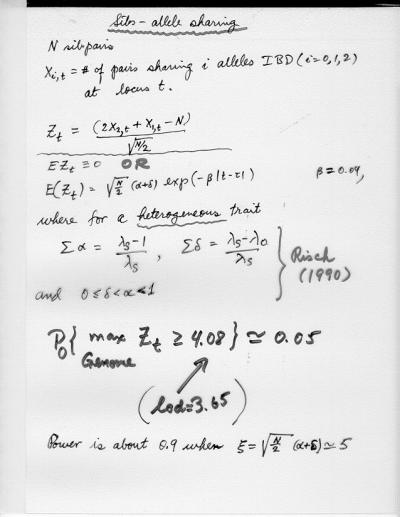 Sibs - allele sharing
N sibpairs
X_{i,t} = # of pairs sharing i alleles IBD (i=0,1,2)
at locus t.
Z_t = (2X_{2,t} + X_{1,t} - N) / √(N/2)
EZ_t ≡ 0 OR
E(Z_t) = √(N/2) (α+δ) exp(-β|t-τ|) β=0.04,
where for a heterogeneous trait
Σα = (λ_S - 1)/λ_S , Σδ = (λ_S - λ_O)/λ_S } Risch (1990)
and 0 ≤ δ < α < 1
P_0{ max Z_t ≥ 4.08 } ≃ 0.05
Genome
(lod=3.65)
Power is about 0.9 when ξ = √(N/2) (α+δ) ≃ 5